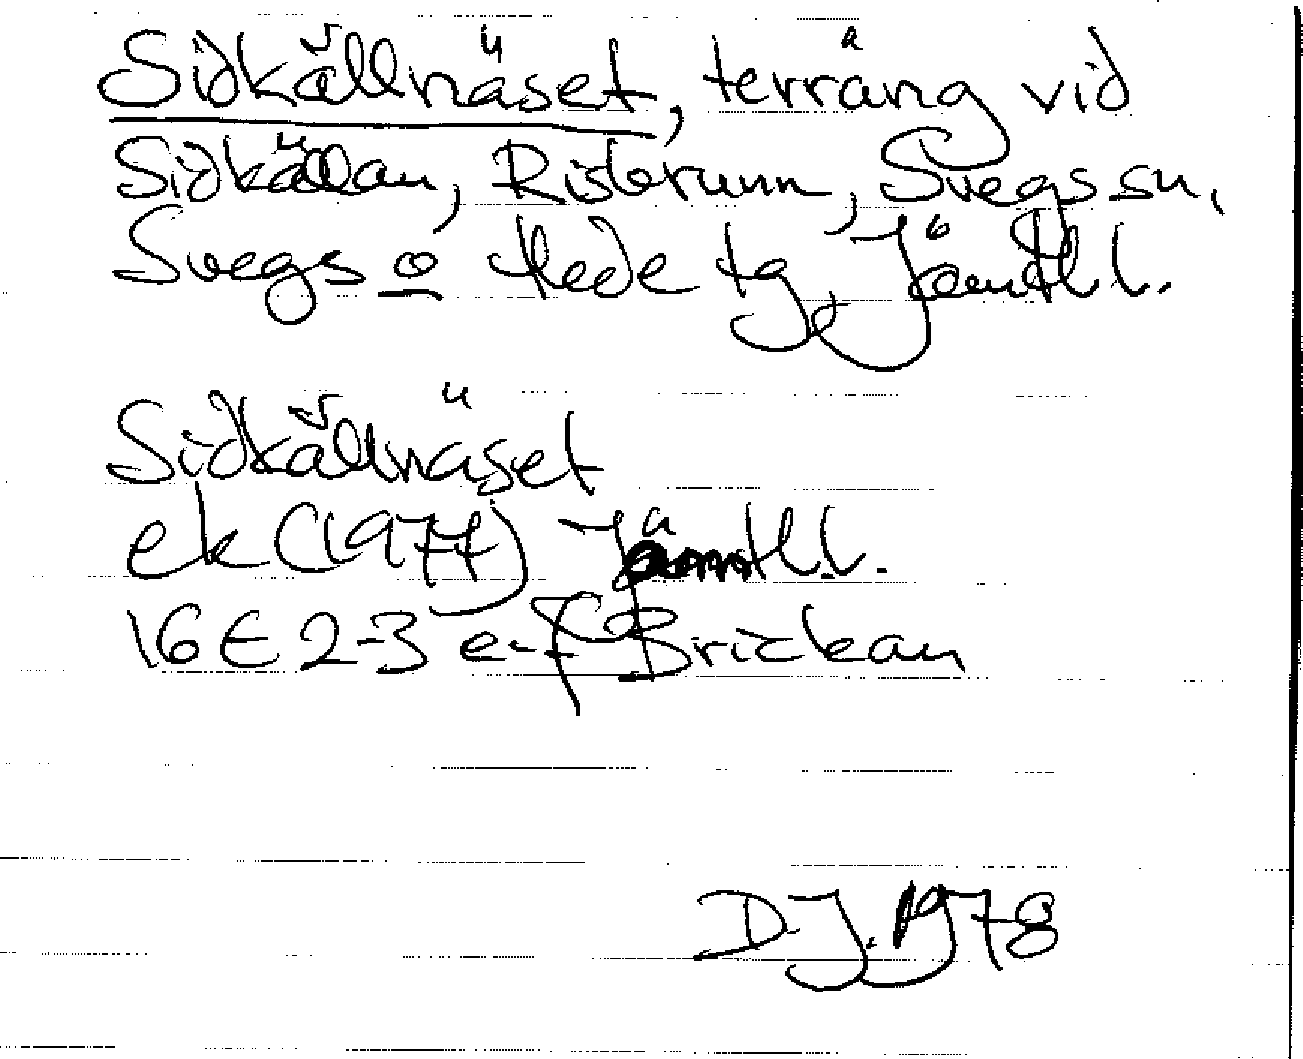 Sidkällnäset, terräng vid
Sidkällan, Risbrunn, Svegs sn,
Svegs o Hede tg, Jämtl l.
Sidkällnäset
ek (1977) Jämtl.l.
16 E 2-3 e-f Brickan
D.J. 1978